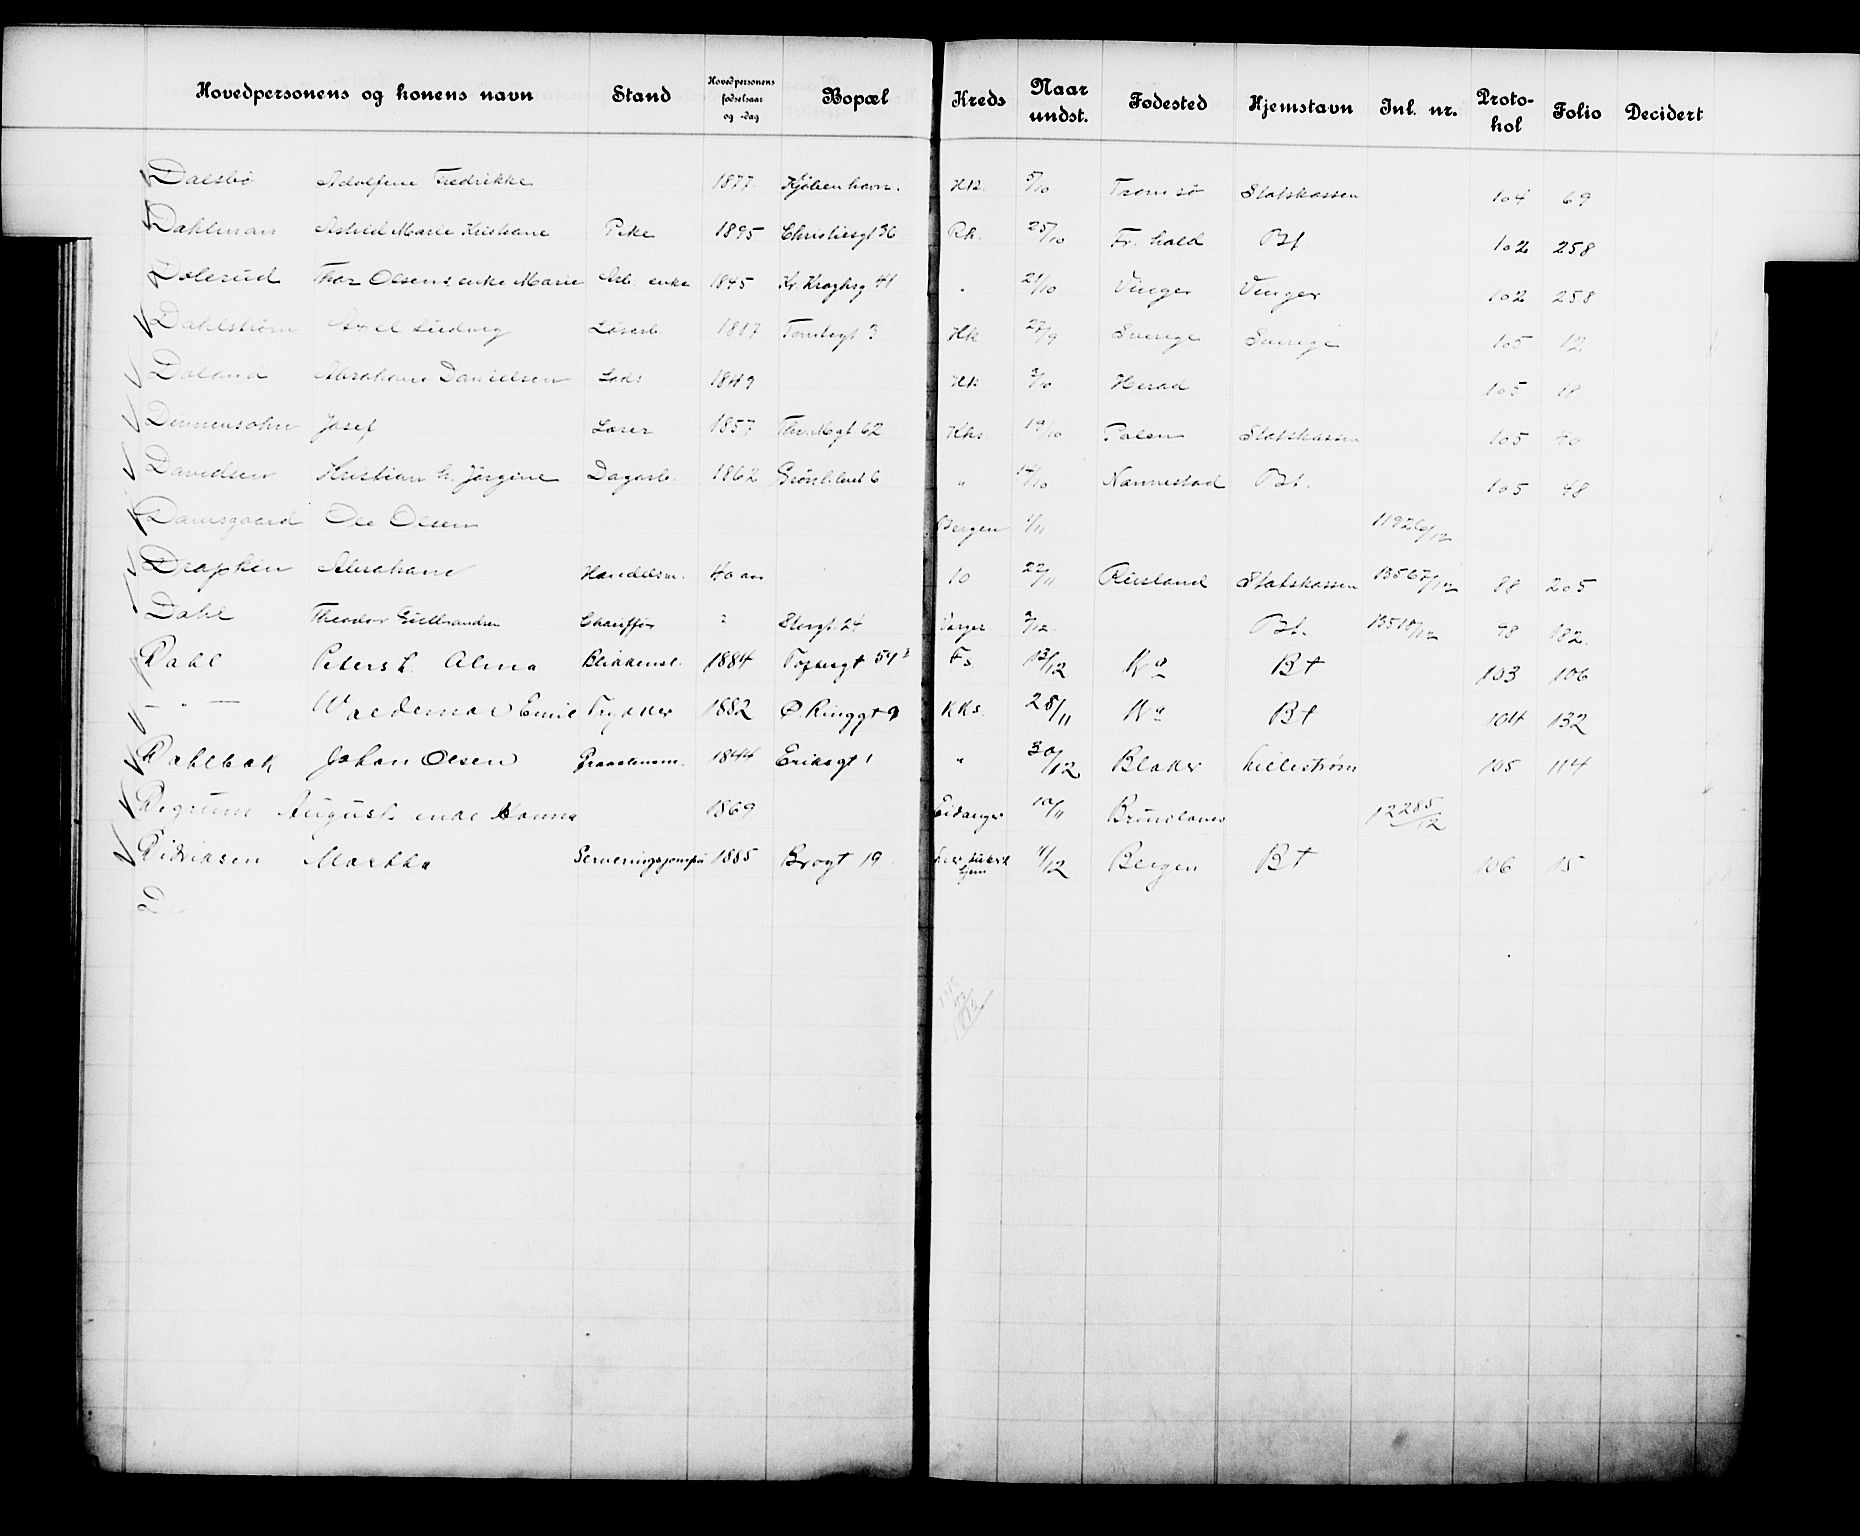 Hovedpersonens og konens navn Stand Hovedpersonens fødselsaar og -dag Bopæl Kreds Naar undst. Fødested Hjemstavn Inl. nr. Protokol Folio Decidert
Dalsbö Adolfine Fredrikke 1877 Kjøbenhavn. Hk. 5/10 Tromsö Statskassen 104 69
Dahlman Astrid Marie Kristiane Pike 1895 Christiesgt 36 Rh. 25/10 Fr. hald Bt 102 258
Dolerud Thor Olsens enke Marie Arb. enke 1845 Kr. Kroghsg 41 " 21/10 Vinger Vinger 102 258
Dahlström Axel Ludvig Løsarb. 1887 Tomtegt 3 Hk 27/9 Sverige Sverige 105 12
Doland Abraham Danielsen Lods 1849 Hk 3/10 Herad 105 18
Josef 1857 62 Hks. 19/10 Polen Statskassen 105 40
Davidsen Kristian h. Jörgine Dagarb. 1862 6 " 14/10 Nannestad Bt. 105 48
Damsgaard Ole Olsen Bergen 1/11
Drapkin Abraham Handelsm. 40 aar 10 22/11 Rusland Statskassen 13567/12 88 205
Dahl Theodor Gulbrandsen Chauffør ? Storgt. 24 Bt. 13518/12 98 182.
Dahl Peters h. Alma Blikkensl. 1884 Toftesgt 54 Fs 13/12 Kra Bt 103 106
— " — Waldemar Emil Trykker 1882 Ø. Ringgt 9 KKs. 28/11 Kra Bt 104 132
Dahlbak Johan Olsen 1844 Eriksgt 1 " 30/12 Blaker Lilleström 105 114
Degrum August enke Hanna 1869 Eidanger 10/11 Brunlanes 12285/12
Didriksen Martha Serveringsjomfru 1885 Brogt 19 hjem 11/12 Bergen Bt 106 15